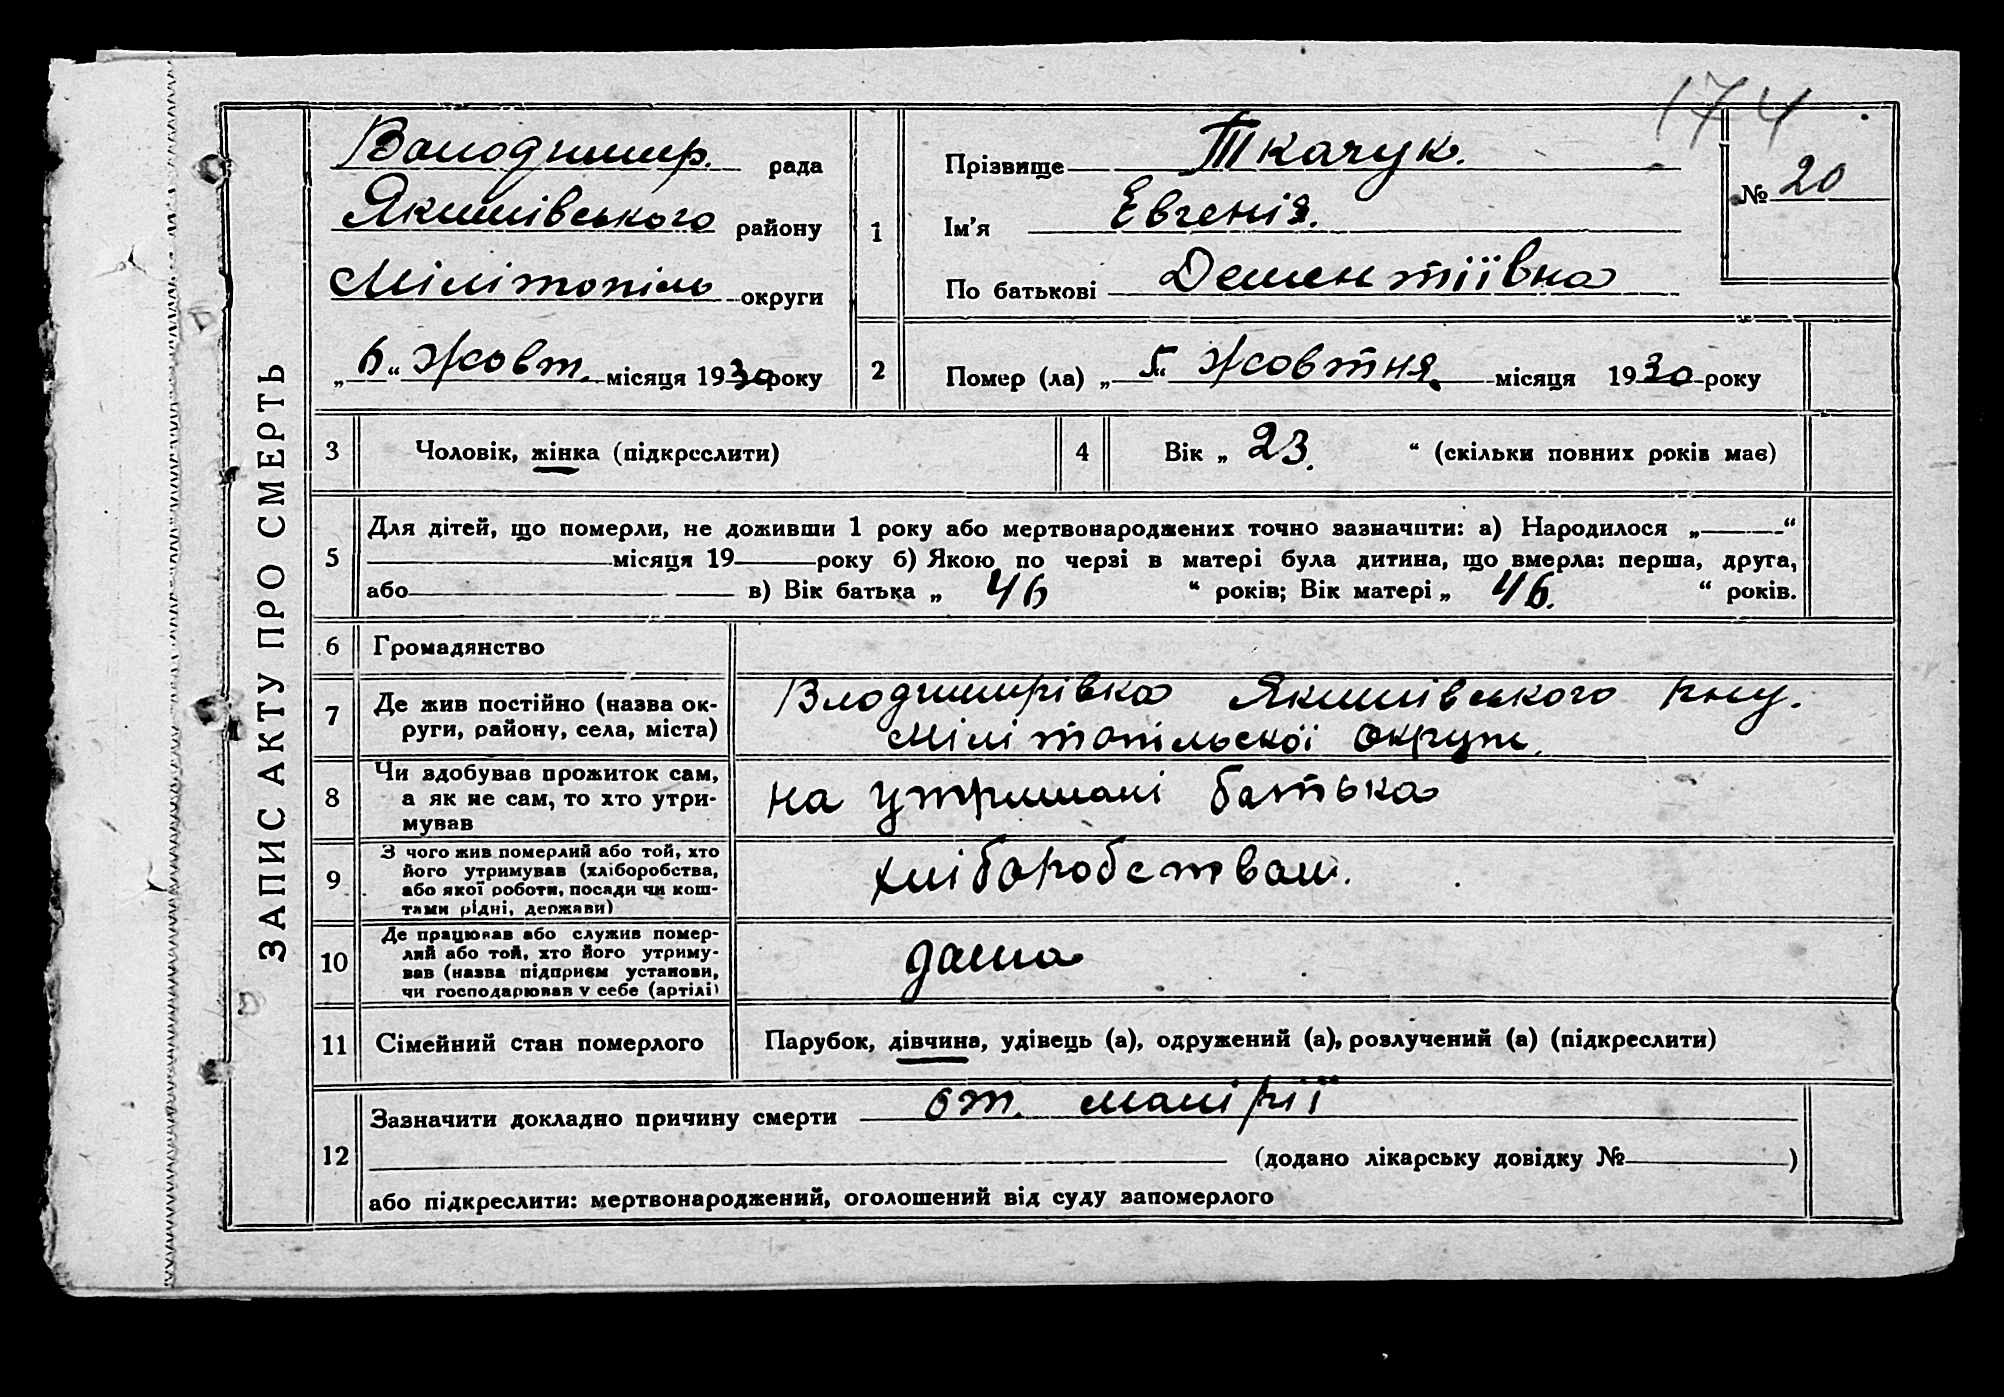 174
ЗАПИС АКТУ ПРО СМЕРТЬ
Володимир. рада
Якимівського району
Мілітопіль округи
„6“ Жовт. місяця 1930 року
1
Прізвище Ткачук.
Ім'я Евгенія.
По батькові Дементіївна
№ 20
2
Помер (ла) „5“ Жовтня місяця 1930 року
3 Чоловік, жінка (підкреслити)
4 Вік „ 23. “ (скільки повних років має)
5
Для дітей, що померли, не доживши 1 року або мертвонароджених точно зазначити: а) Народилося „——“
місяця 19 року б) Якою по черзі в матері була дитина, що вмерла: перша, друга,
або в) Вік батька „ 46 “ років; Вік матері „ 46. “ років.
6 Громадянство
7 Де жив постійно (назва ок-
руги, району, села, міста)
Влодимирівка Якимівського рну.
Мілітопільскої округи.
8 Чи здобував прожиток сам,
а як не сам, то хто утри-
мував
на утримані батька
9 З чого жив померлий або той, хто
його утримував (хліборобства,
або якої роботи, посади чи кош-
тами рідні, держави)
хліборобством.
10 Де працював або служив помер-
лий або той, хто його утриму-
вав (назва підприєм установи,
чи господарював у себе (артілі)
дома
11 Сімейний стан померлого
Парубок, дівчина, удівець (а), одружений (а), розлучений (а) (підкреслити)
12
Зазначити докладно причину смерти от. малірії
(додано лікарську довідку № )
або підкреслити: мертвонароджений, оголошений від суду запомерлого